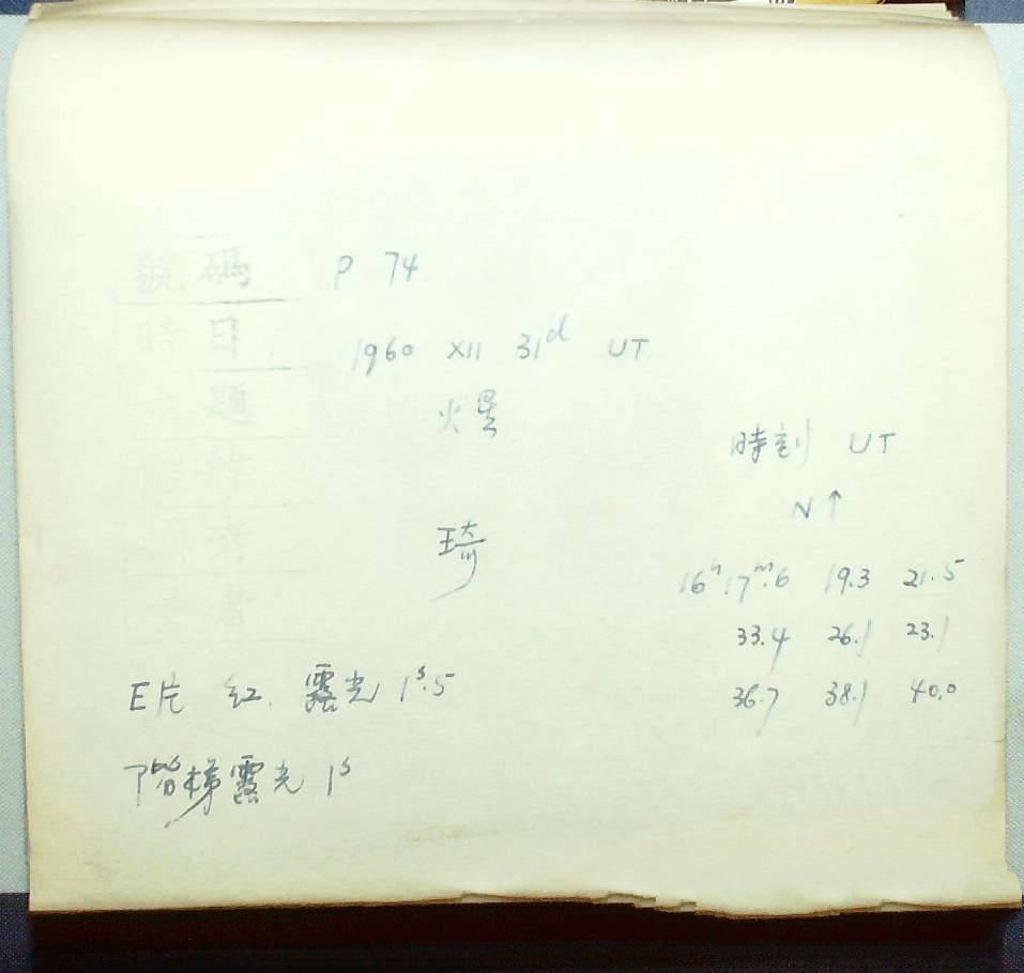 號碼 P 74
時日 1960 XII 31ᵈ UT
題 火星
琦
時刻 UT
N↑
16ʰ17ᵐ.6 19.3 21.5
33.4 26.1 23.1
36.7 38.1 40.0
E片 紅. 露光 1ˢ.5
階梯露光 1ˢ